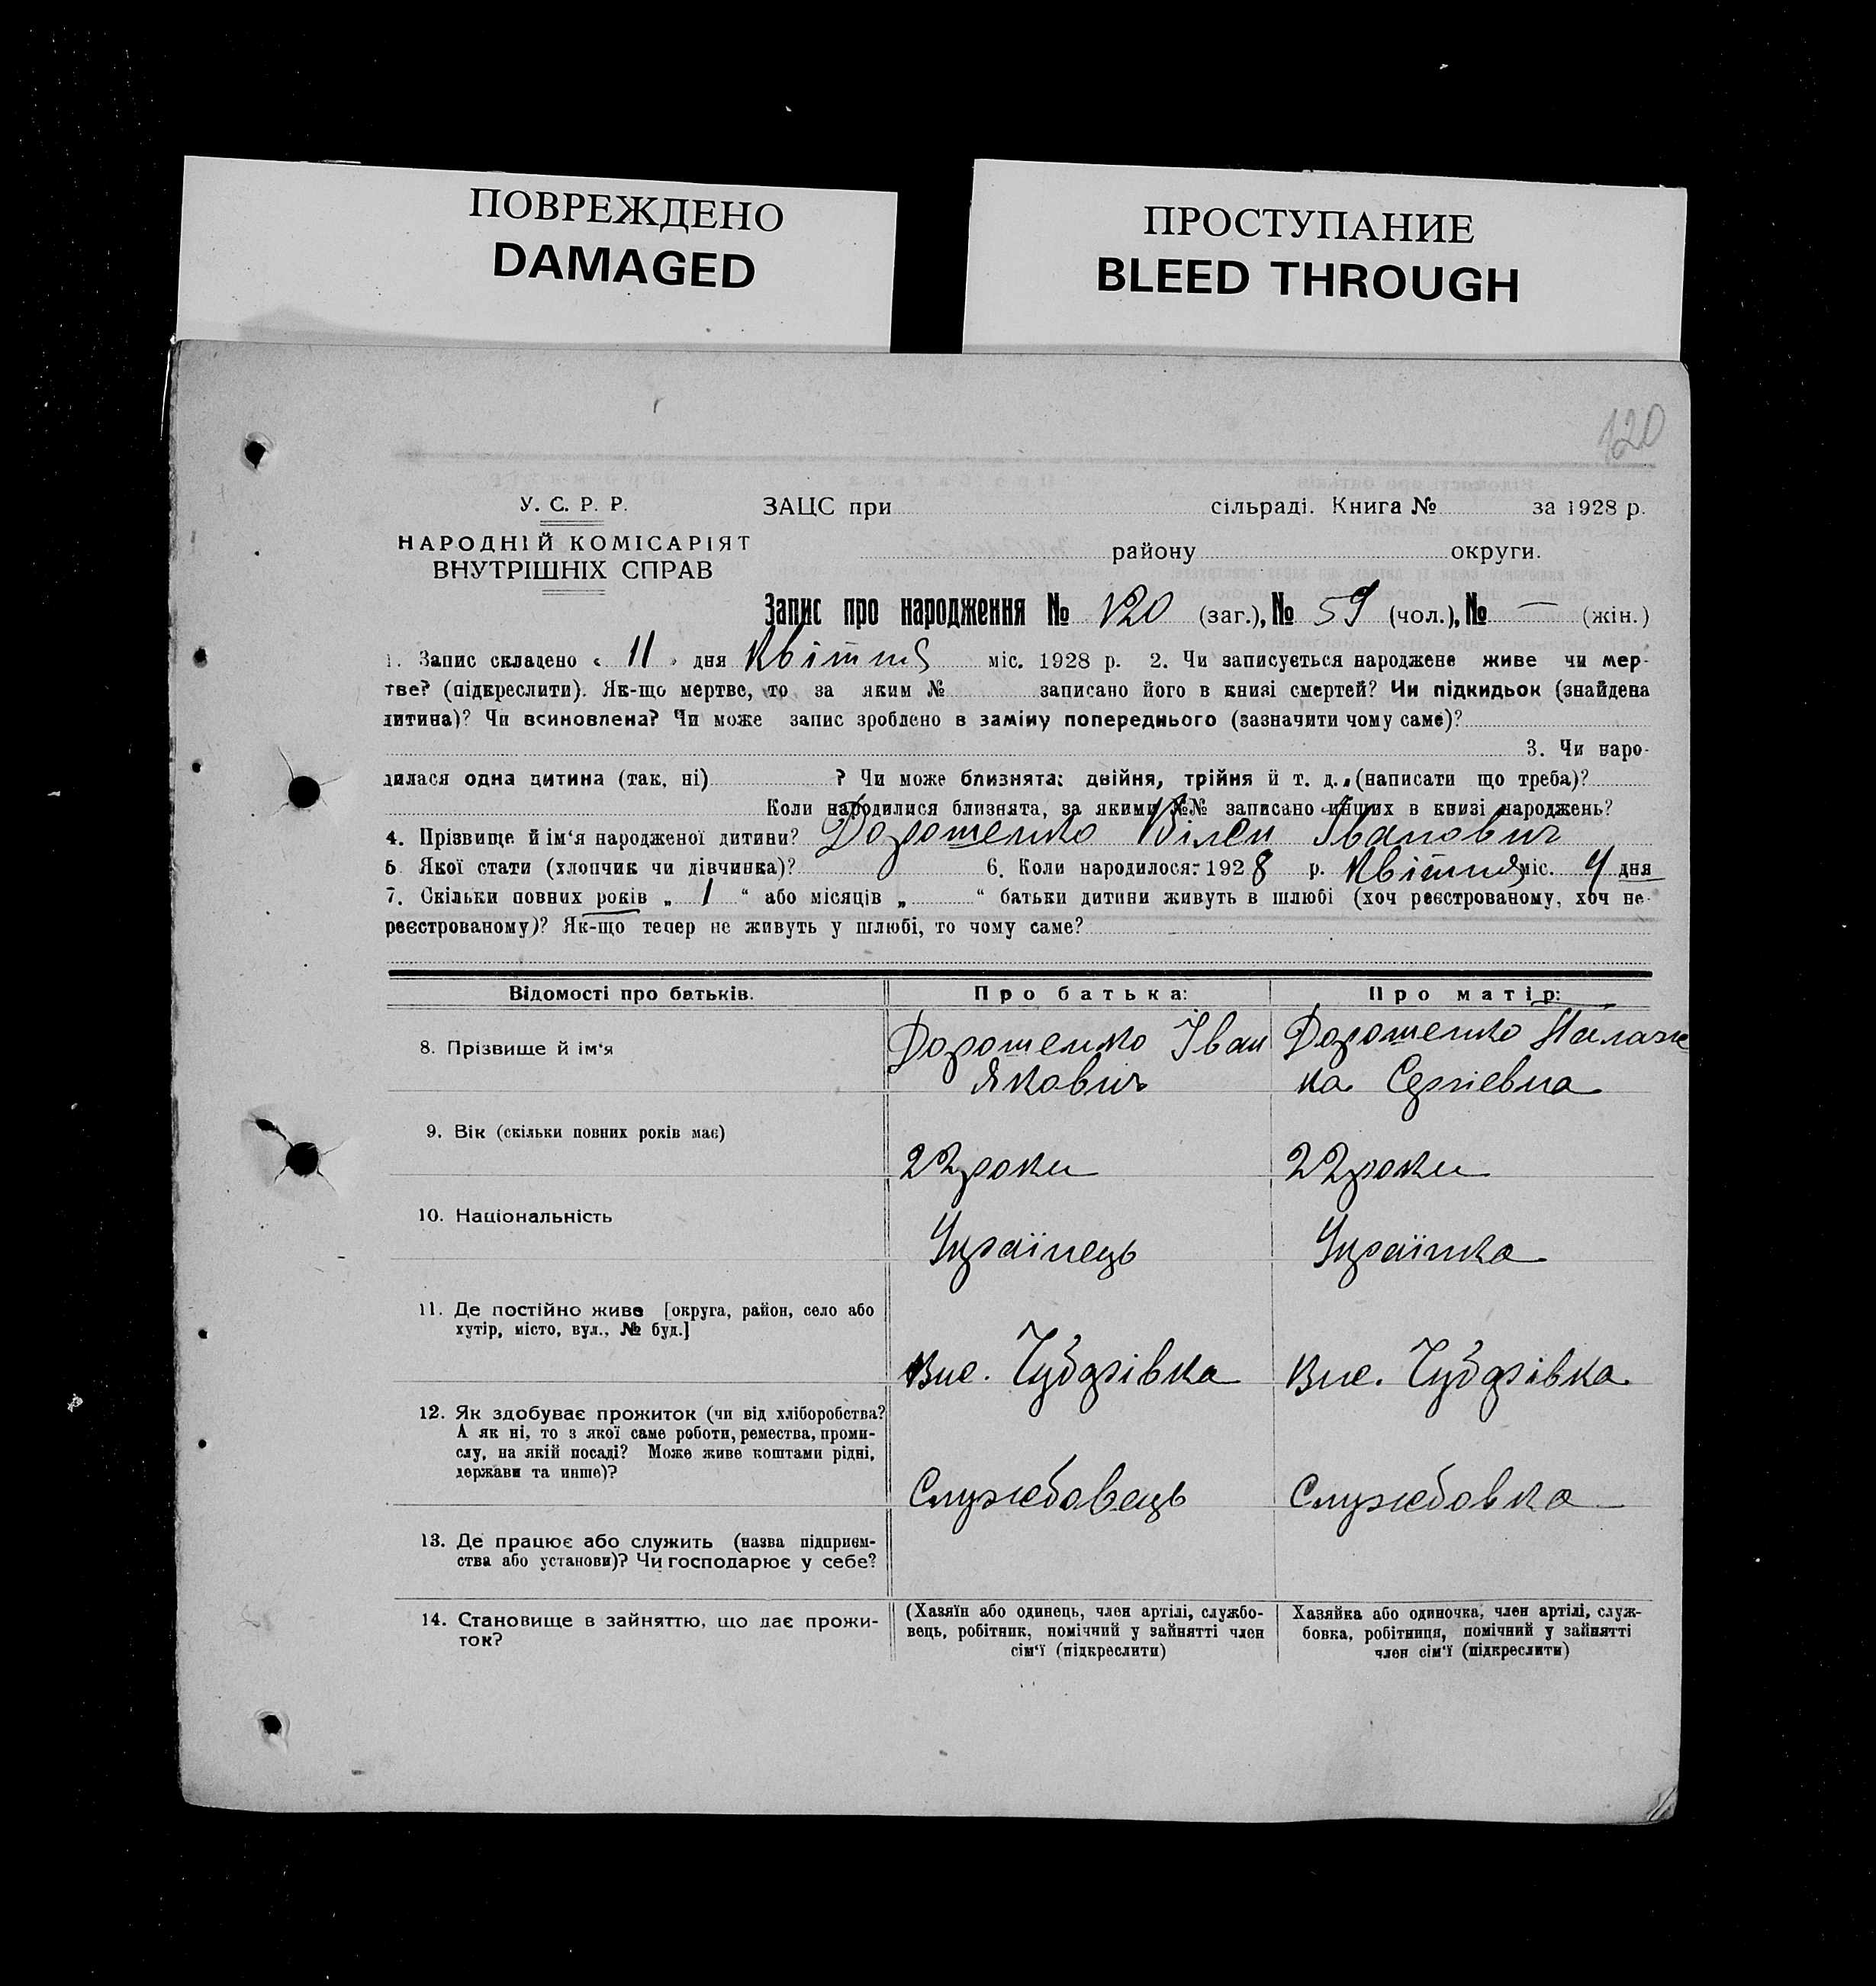 ПОВРЕЖДЕНО
DAMAGED
ПРОСТУПАНИЕ
BLEED THROUGH
120
У. С. Р. Р.
НАРОДНІЙ КОМІСАРІЯТ
ВНУТРІШНІХ СПРАВ
ЗАЦС при сільраді. Книга № за 1928 р.
району округи.
Запис про народження № 120 (заг.), № 59 (чол.), № — (жін.)
1. Запис складено « 11 » дня Квітня міс. 1928 р. 2. Чи записується народжене живе чи мер-
тве? (підкреслити). Як-що мертве, то за яким № записано його в книзі смертей? Чи підкидьок (знайдена
дитина)? Чи всиновлена? Чи може запис зроблено в заміну попереднього (зазначити чому саме)?
3. Чи наро-
дилася одна дитина (так, ні) ? Чи може близнята: двійня, трійня й т. д., (написати що треба)?
Коли народилися близнята, за якими №№ записано инших в книзі народжень?
4. Прізвище й ім'я народженої дитини? Дорошенко Вілен Іванович
5 Якої стати (хлопчик чи дівчинка)? 6. Коли народилося: 1928 р. Квітня міс. 4 дня
7. Скільки повних років „ 1 “ або місяців „ “ батьки дитини живуть в шлюбі (хоч реєстрованому, хоч не-
реєстрованому)? Як-що тепер не живуть у шлюбі, то чому саме?
Відомості про батьків. Про батька: Про матір:
8. Прізвище й ім'я Дорошенко Іван Дорошенко Палаж
Якович ка Сергіевна
9. Вік (скільки повних років має)
22 роки 22 роки
10. Національність
Українець Українка
11. Де постійно живе [округа, район, село або
хутір, місто, вул., № буд.]
Вис. Чубарівка Вис. Чубарівка
12. Як здобуває прожиток (чи від хліборобства?
А як ні, то з якої саме роботи, ремества, проми-
слу, на якій посаді? Може живе коштами рідні,
держави та инше)?
Службовець Службовка
13. Де працює або служить (назва підприєм-
ства або установи)? Чи господарює у себе?
14. Становище в зайняттю, що дає прожи-
ток?
(Хазяїн або одинець, член артілі, службо-
вець, робітник, помічний у зайнятті член
сім'ї (підкреслити)
Хазяйка або одиночка, член артілі, служ-
бовка, робітниця, помічний у зайнятті
член сім'ї (підкреслити)